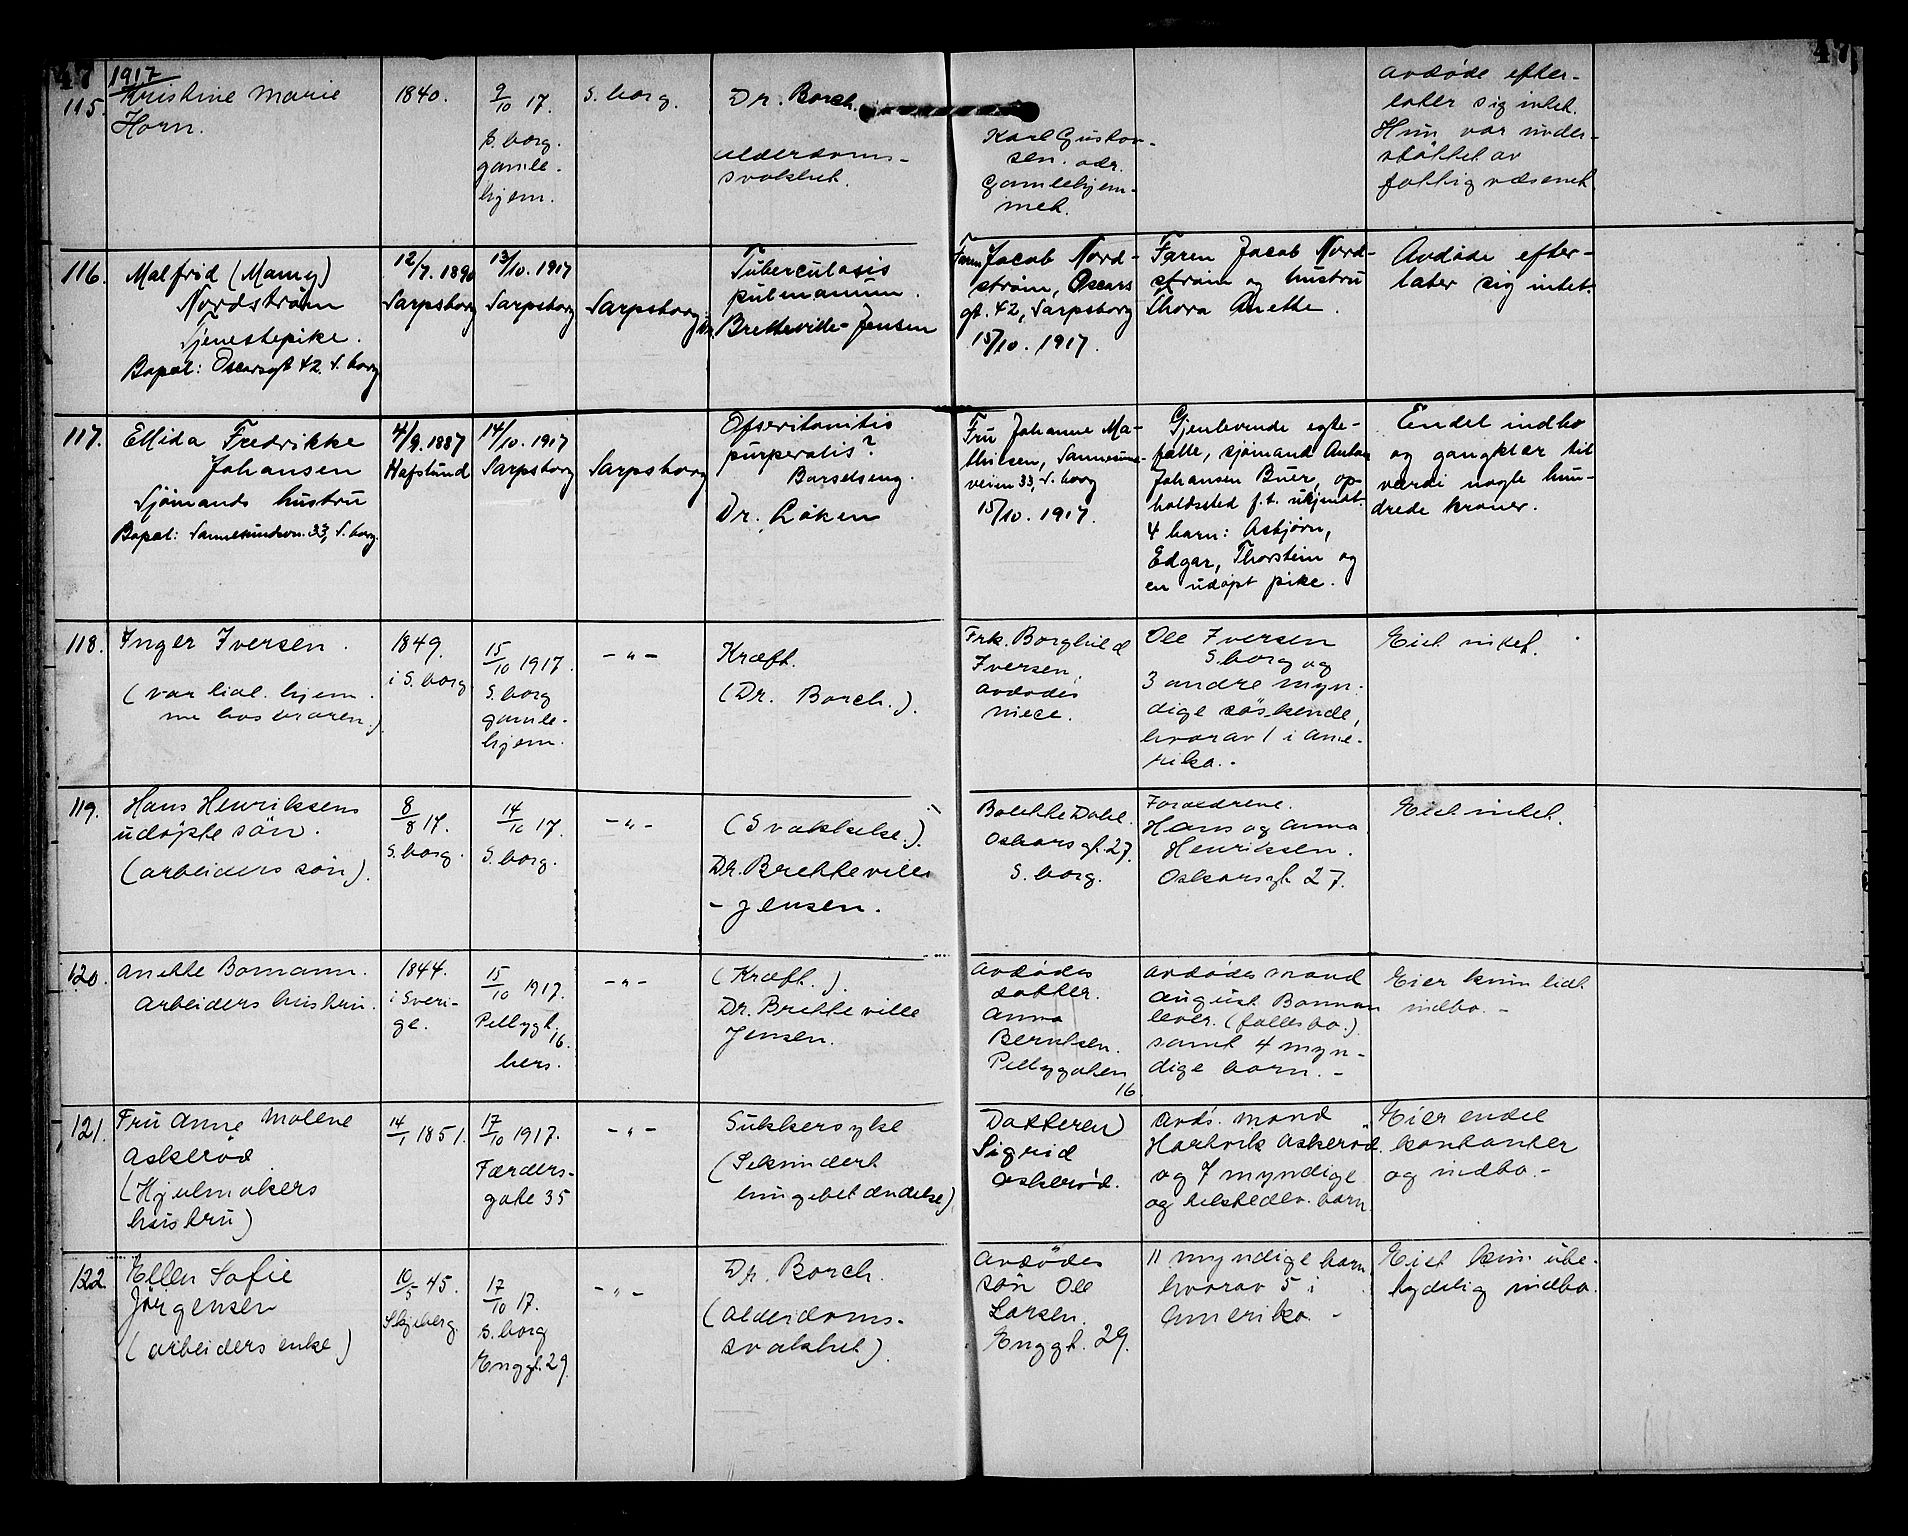 47
47
1917
115.
Kristine Marie
Horn.
1840.
9/10 17.
S. borg.
gamle-
hjem.
S. borg.
Dr. Borch.
alderdoms-
svakhet.
Karl Gustav-
sen. adr.
Gamlehjem-
met.
Avdøde efter-
later sig intet.
Hun var under-
støttet av
fattigvæsenet
116.
Malfrid (Mamy)
Nordstrøm
Tjenestepike.
Bopæl: Oscarsgt 42. S. borg
12/7. 1890
Sarpsborg
13/10. 1917
Sarpsborg
Sarpsborg
Tuberculosis
pulmonum.
Bretteville-Jensen
Faren Jacob Nord-
strøm, Oscars
gt. 42, Sarpsborg
15/10. 1917.
Faren Jacob Nord-
strøm og hustru
Thora Anette.
Avdøde efter-
later sig intet.
117.
Ellida Fredrikke
Johansen
Sjømands hustru
Bopæl: Sannesundsvn. 33, S. borg.
4/9. 1887
Hafslund
14/10. 1917
Sarpsborg
Sarpsborg
purperalis?
Barselseng.
Dr. Løken
Fru Johanne Ma-
thisen, Sannesunds-
veien 33, S. borg
15/10. 1917.
Gjenlevende egte-
fælle, sjømand Anton
Johansen Buer, op-
holdssted f.t. ukjendt.
4 barn: Asbjørn,
Edgar, Thorstein og
en udøpt pike.
Endel indbo
og gangklær til
værdi nogle hun-
drede kroner.
118.
Inger Iversen.
(var hjem-
me hos broren.)
1849.
i S. borg
15/10 1917.
S. borg
gamle-
hjem.
- " -
Kræft.
(Dr. Borch.).
Frk. Borghild
Iversen,
avdødes
niece.
Ole Iversen
S. borg og
3 andre myn-
dige søskende,
hvorav 1 i Ame-
rika. -
Eiet intet.
119.
Hans Henriksens
udøpte søn.
(arbeiders søn).
8/8 17.
S. borg.
14/10 17.
S. borg.
- " -
(Svakhet.).
Dr. Bretteville
- Jensen.
Bolette Dahl.
Oskarsgt. 27.
S. borg.
Forældrene.
Hans og Anna
Henriksen.
Oskarsgt 27.
Eiet intet.
120.
Anette Bomann.
Arbeiders hustru.
1844.
i Sveri-
ge.
15/10 1917.
Pellygt. 16.
hers.
- " -
(Kræft.).
Dr. Bretteville
Jensen.
Avdødes
datter.
Anna
Berntsen.
Pellygaten
16
Avdødes mand
August Bomann
lever. (fællesbo.)
samt 4 myn-
dige barn. -
Eier kun lidt
indbo. -
121.
Fru Anne Molene
Askerød
(Hjulmakers
hustru)
14/1 1851.
17/10 1917.
Færders-
gate 35
- " -
Sukkersyke
(Sekundert
lungebetændelse)
Datteren
Sigrid
Askerød.
Avd's. mand
Hartvik Askerød.
og 7 myndige
og tilstedev. barn.
Eier endel
kontanter
og indbo. -
122.
Ellen Sofie
Jørgensen
(arbeiders enke)
10/5 45.
Skjeberg.
17/10 17.
S. borg
Enggt. 29.
- " -
Dr. Borch.
(alderdoms-
svakhet).
Avdødes
søn Ole
Larsen.
Enggt. 29.
11 myndige barn
hvorav 5 i
Amerika. -
Eiet kun ube-
tydelig indbo.